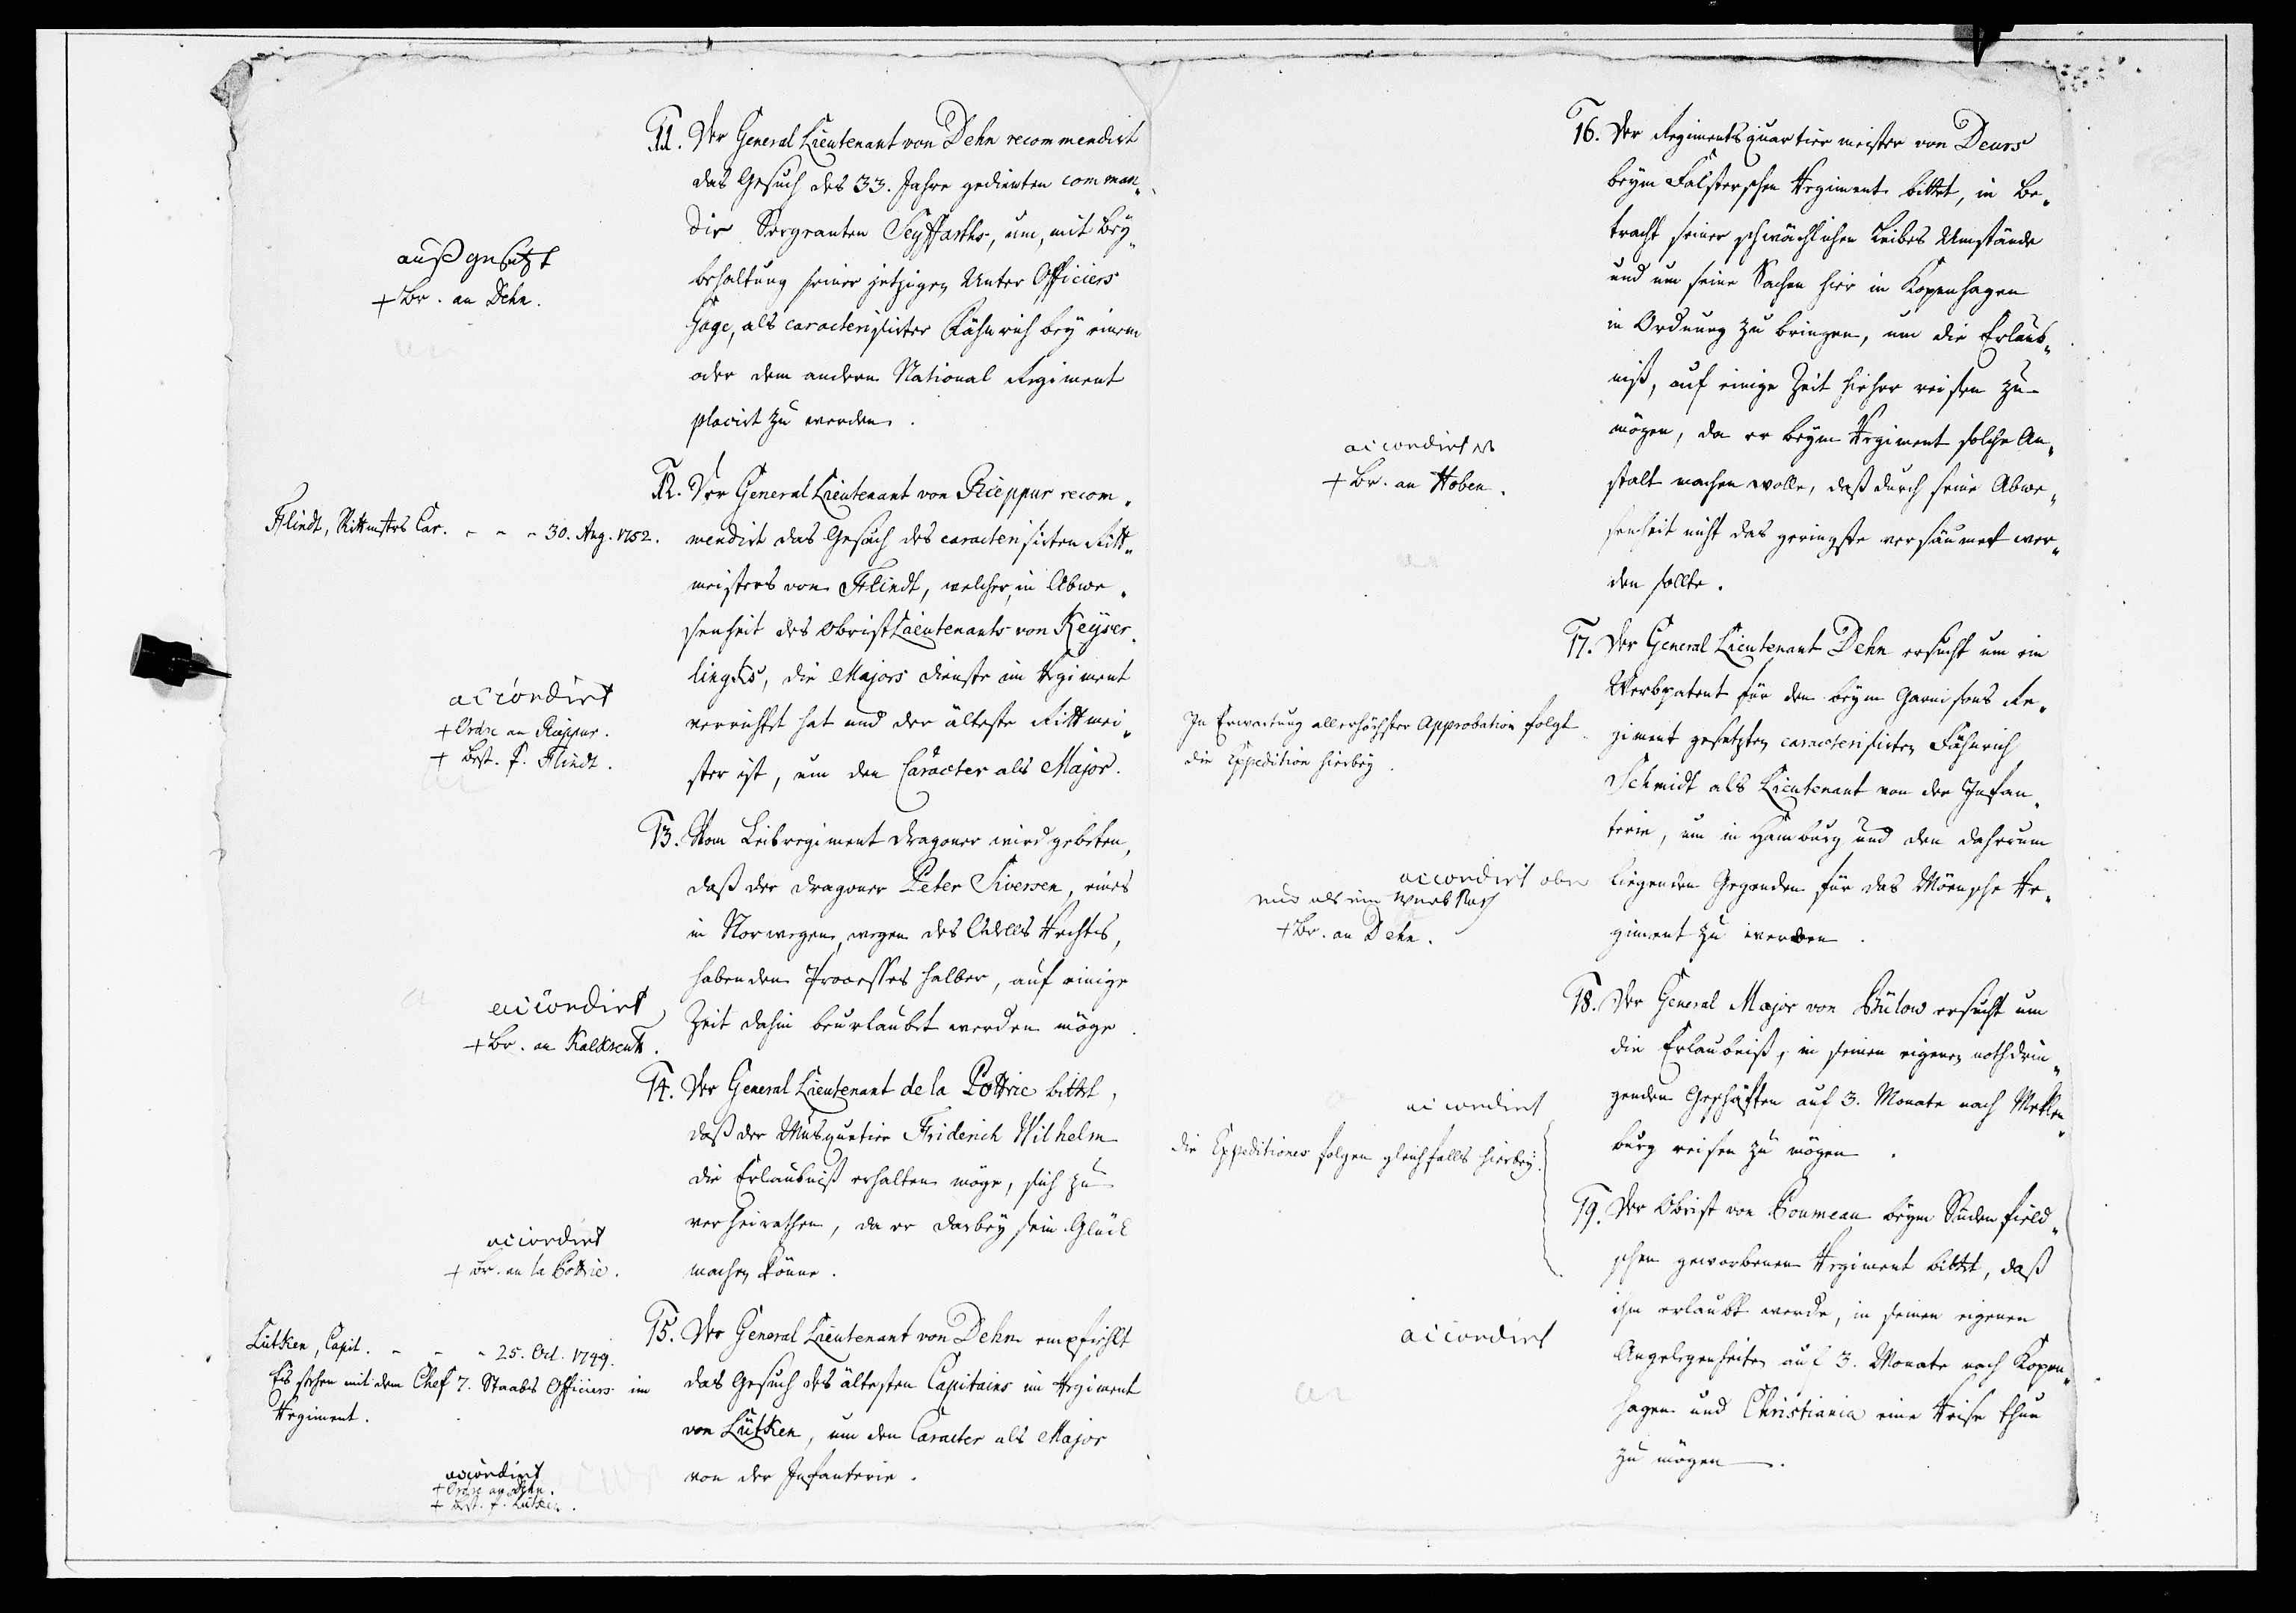 11. Der General Lieutenant von Dehn recommendirt
das Gesuch des 33. Jahre gedienten comman„
dir Sergeanten Seyffarths, um, mit Bey„
behaltung seiner jetzigen Unter Officiers
Gage, als caracterisirter Fähnrich bey einem
oder dem andern National Regiment
placirt zu werden.
außgesetzt
+ Br. an Dehn.
12. Der General Lieutenant von Rieppur recom„
mendirt das Gesuch des caracterisirten Ritt„
meisters von Flindt, welcher, in Abwe„
senheit des Obristlieutenants von Keyser„
lingks, die Majors dienste im Regiment
verrichtet hat und der älteste Rittmei„
ster ist, um den Caracter als Major.
Flindt, Rittmstrs Car. - - - 30. Aug. 1752.
accordirt
+ Ordre an Rieppur.
+ Best. f. Flindt.
13. Vom Leibregiment Dragoner wird gebeten,
daß der Dragoner Peter Siversen, eines
in Norwegen, wegen des Odells Rechts,
habenden Processes halber, auf einige
Zeit dahin beurlaubet werden möge.
accordirt
+ Br. an Kalckreuth.
14. Der General Lieutenant de la Pottrie bittet,
daß der Musquetier Friderich Wilhelm
die Erlaubniß erhalten möge, sich zu
verheirathen, da er dabey sein Glück
machen könne.
accordirt
+ Br. an la Pottrie.
15. Der General Lieutenant von Dehn empfiehlt
das Gesuch des ältesten Capitains im Regiment
von Lütken, um den Caracter als Major
von der Infanterie.
Lütken, Capit. - - - 25. Oct. 1749.
Es stehen mit dem Chef 7. Staabs Officiers im
Regiment.
accordirt
+ Ordre an Dehn.
+ Best. f. Lütken.
16. Der Regimentsquartiermeister von Deurs
beym Falsterschen Regiment bittet, in Be„
tracht seiner schwächlichen Leibes Umstände
und um seine Sachen hier in Kopenhagen
in Ordnung zu bringen, um die Erlaub„
niß, auf einige Zeit hieher reisen zu
mögen, da er beym Regiment solche An„
stalt machen wolle, daß durch seine Abwe„
senheit nicht das geringste versäumet wer„
den sollte.
accordirt
+ Br. an Hoben.
17. Der General Lieutenant Dehn ersucht um ein
Werbpatent für den beym Garnisons Re„
giment gesetzten caracterisirten Fähnrich
Schmidt als Lieutenant von der Infan„
terie, um in Hamburg und den daherum
liegenden Gegenden für das Möensche Re„
giment zu werben.
In Erwartung allerhöchster Approbation folgt
die Expedition hierbey.
accordirt aber
nur als ein Werb Pass
+ Br. an Dehn.
18. Der General Major von Bülow ersucht um
die Erlaubniß, in seinen eigenen nothdrin„
genden Geschäften auf 3. Monate nach Meklen„
burg reisen zu mögen.
accordirt
die Expeditiones folgen gleichfalls hierbey.
19. Der Obrist von Coumeau beym Sudenfield„
schen geworbenen Regiment bittet, daß
ihm erlaubt werde, in seinen eigenen
Angelegenheiten auf 3. Monate nach Kopen„
hagen und Christiania eine Reise thun
zu mögen.
accordirt